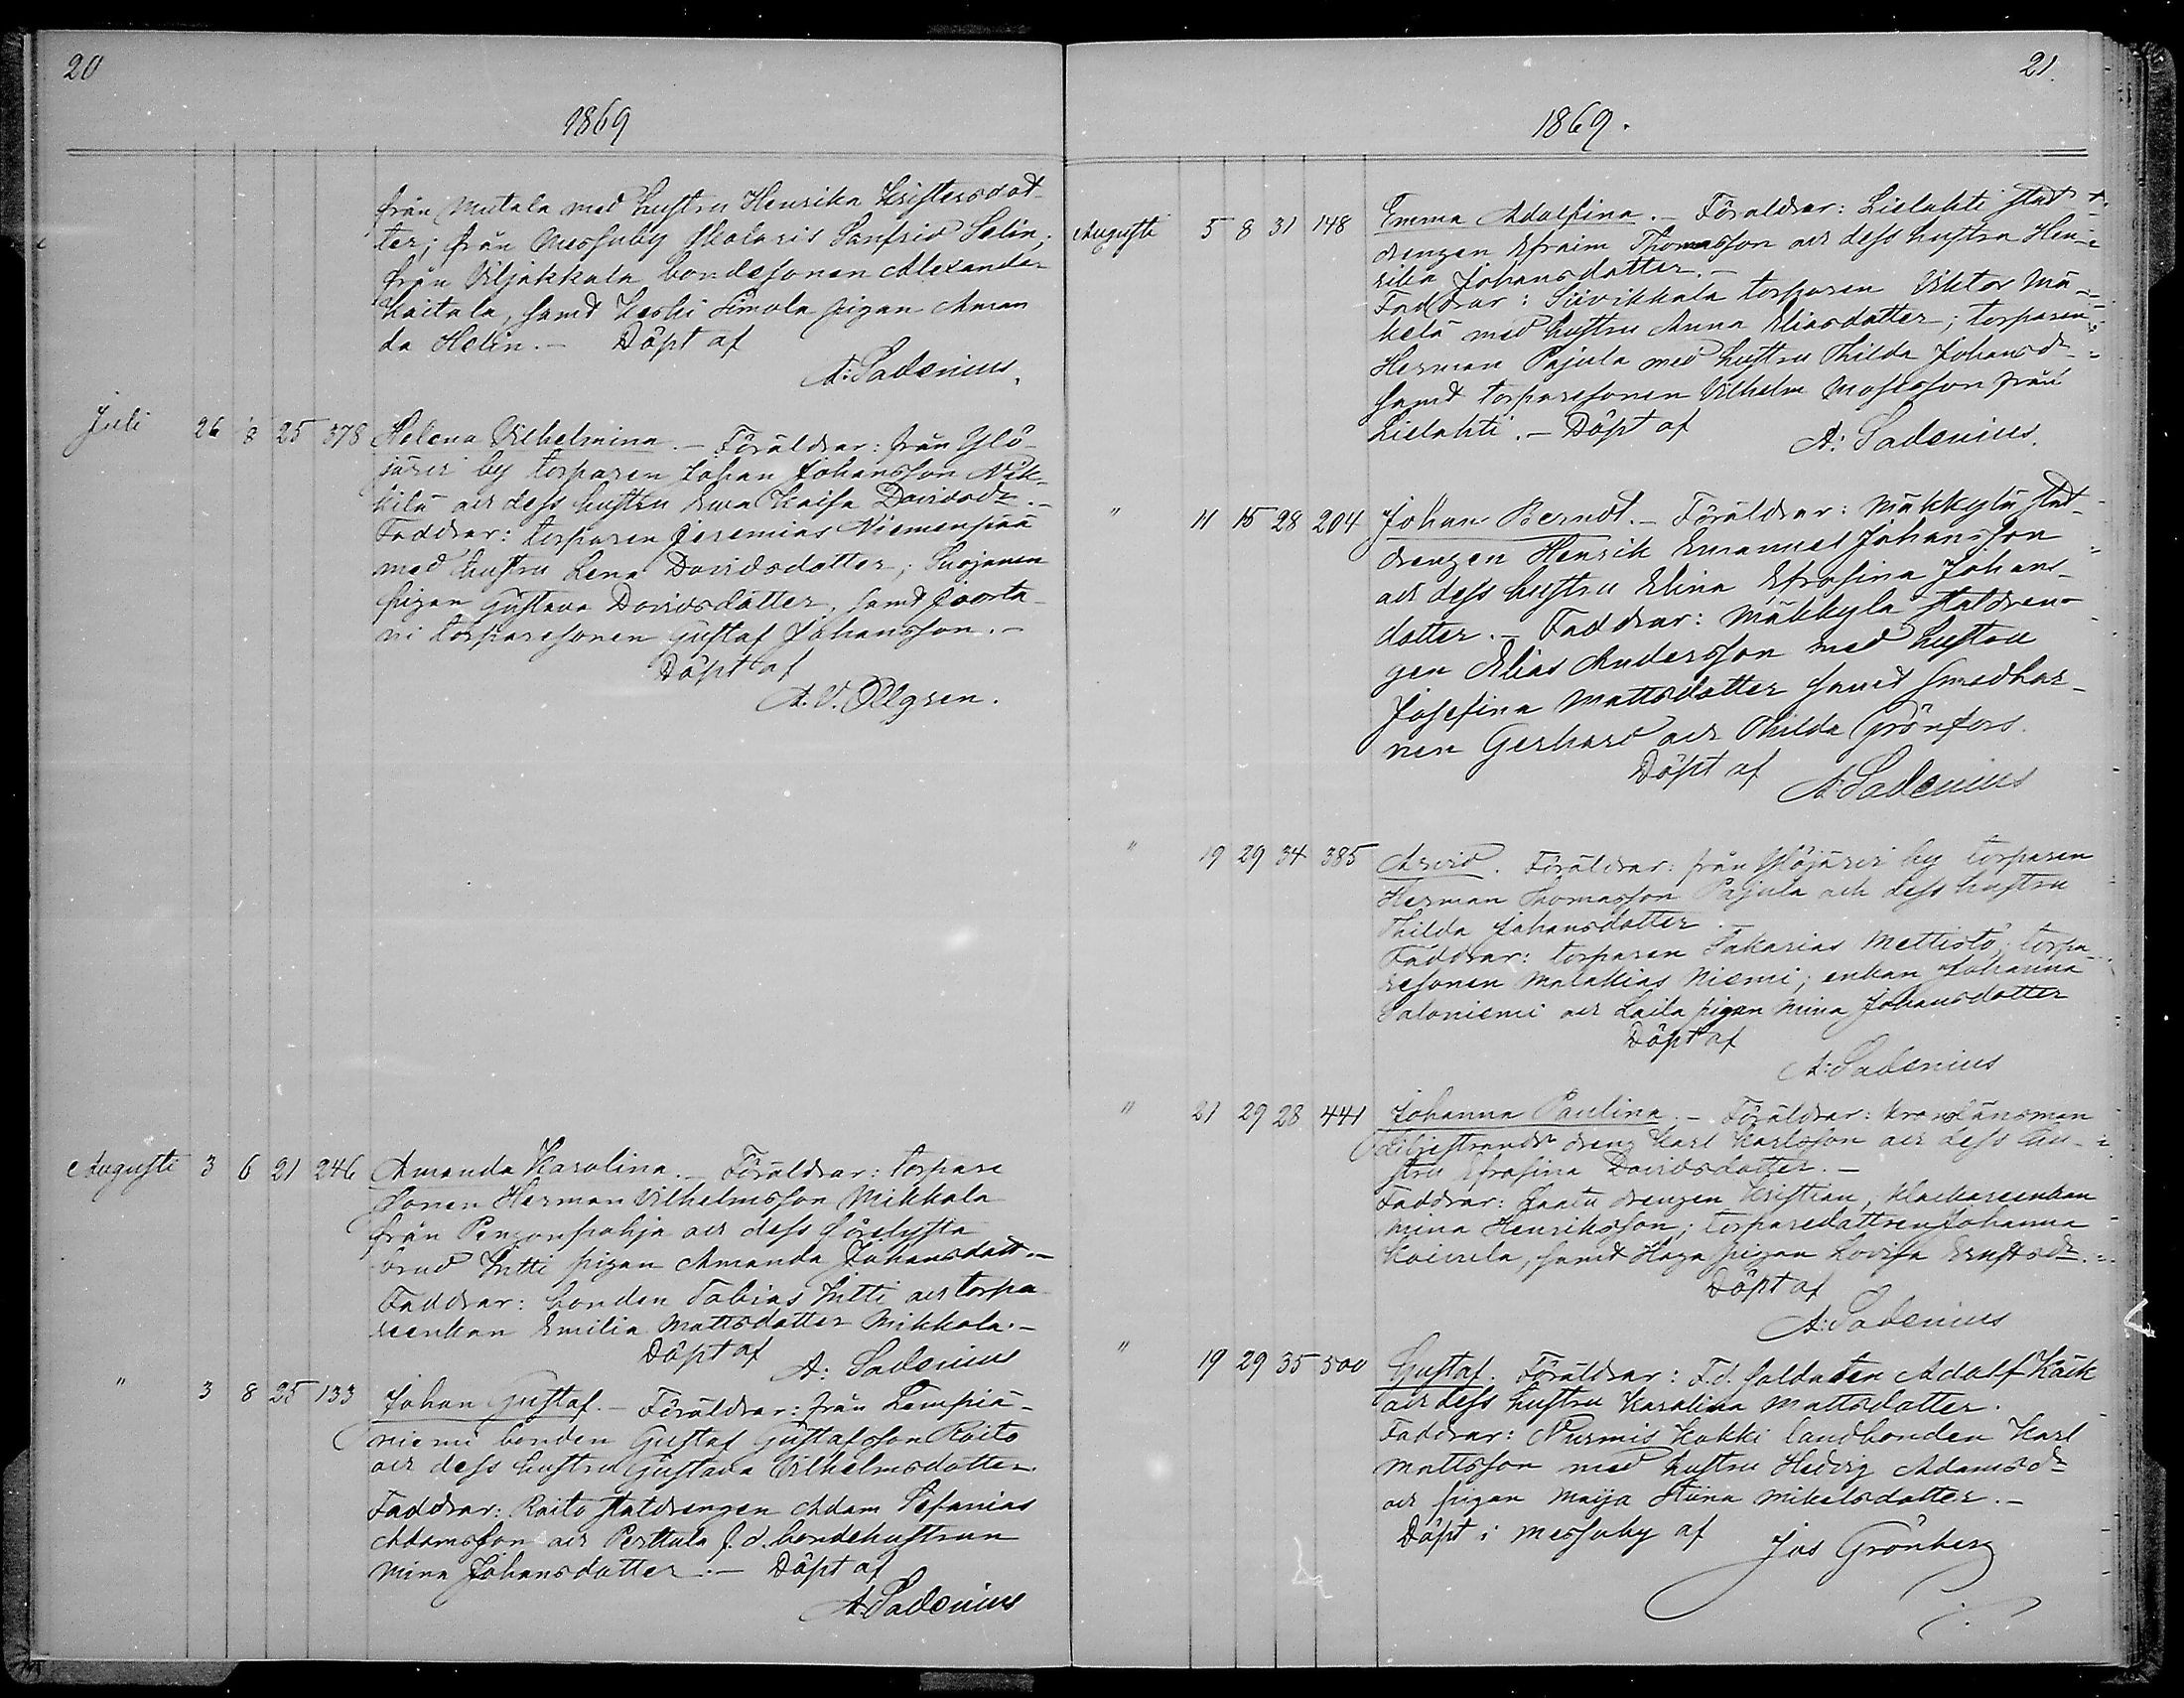 20
1869
från Mutala med hustru Henrika Kristersdot-
ter; från Messuby skolaris Sanfrid Selin;
från Viljakkala bondesonen Alexander
Haitala, samt Keski Simola pigan Aman
da Helin. — Döpt af
A: Sadenius.
Juli 26 1/8 25 378 Helena Vilhelmina. — Föräldrar: från Ylö-
järvi by torparen Johan Johansson Nik-
kilä och dess hustru Eva Kaisa Davidsdr. —
Faddrar: torparen Jeremias Niemenpää
med hustru Lena Davidsdotter; Suojanen
pigan Gustava Davidsdotter, samt
torparesonen Gustaf Johansson. —
Döpt af
A. V. Pllgren.
Augusti 3 6 21 246 Amanda Karolina. — Föräldrar: torpare
sonen Herman Vilhelmsson Mikkola
från Pengonpohja och dess förelysta
brud Intti pigan Amanda Johansdott. —
Faddrar: bonden Tobias Intti och torpa
reenkan Emilia Mattsdotter Mikkola. —
Döpt af
A: Sadenius
" 3 8 25 133 Johan Gustaf. — Föräldrar: från Lempiä-
niemi bonden Gustaf Gustafsson Raito
och dess hustru Gustava Vilhelmsdotter.
Faddrar: Raito statdrengen Adam Sefanias
Adamsson och Perttula f. d. bondehustrun
Mina Johansdotter. — Döpt af
A: Sadenius
21.
1869.
Augusti 5 8 31 148 Emma Adolfina. — Föräldrar: Lielahti stat
drengen Efraim Thomasson och dess hustru Hen-
rika Johansdotter. —
Faddrar: Siivikkala torparen Viktor Mä-
kelä med hustru Anna Eliasdotter; torparen
Herman Pajula med hustru Thilda Johansdr
samt torparesonen Vilhelm Mosesson från
Lielahti. — Döpt af
A: Sadenius.
" 11 15 28 204 Johan Berndt. — Föräldrar: Mäkkylä stat-
drengen Henrik Emanuel Johansson
och dess hustru Elina Efrosina Johans-
dotter. — Faddrar: Mäkkylä statdren-
gen Elias Andersson med hustru
Josefina Mattsdotter samt smedbar-
nen Gerhard och Thilda Grönfors.
Döpt af
A: Sadenius
" 19 29 34 385 Arvid. Föräldrar: från Ylöjärvi by torparen
Herman Thomasson Pajula och dess hustru
Thilda Johansdotter.
Faddrar: torparen Sakarias Mettistö; torpa-
resonen Malakias Niemi; enkan Johanna
Saloniemi och Laila pigan Mina Johansdotter
Döpt af
A: Sadenius
" 21 29 28 441 Johanna Paulina. — Föräldrar: kronolänsman
Liliestrands dreng Karl Karlsson och dess hu-
stru Efrosina Davidsdotter. —
Faddrar: drengen Kristian, klockareenkan
Mina Henriksson; torparedottren Johanna
Koivula, samt Haga pigan Lovisa Ernstdr. —
Döpt af
A: Sadenius
" 19 29 35 500 Gustaf. Föräldrar: F.d. soldaten Adolf Käck
och dess hustru Karolina Mattsdotter.
Faddrar: Nurmis Kokki landbonden Karl
Mattsson med hustru Hedvig Adamsdr
och pigan Maija Stiina Mikelsdotter. —
Döpt i Messuby af Jos Grönberg